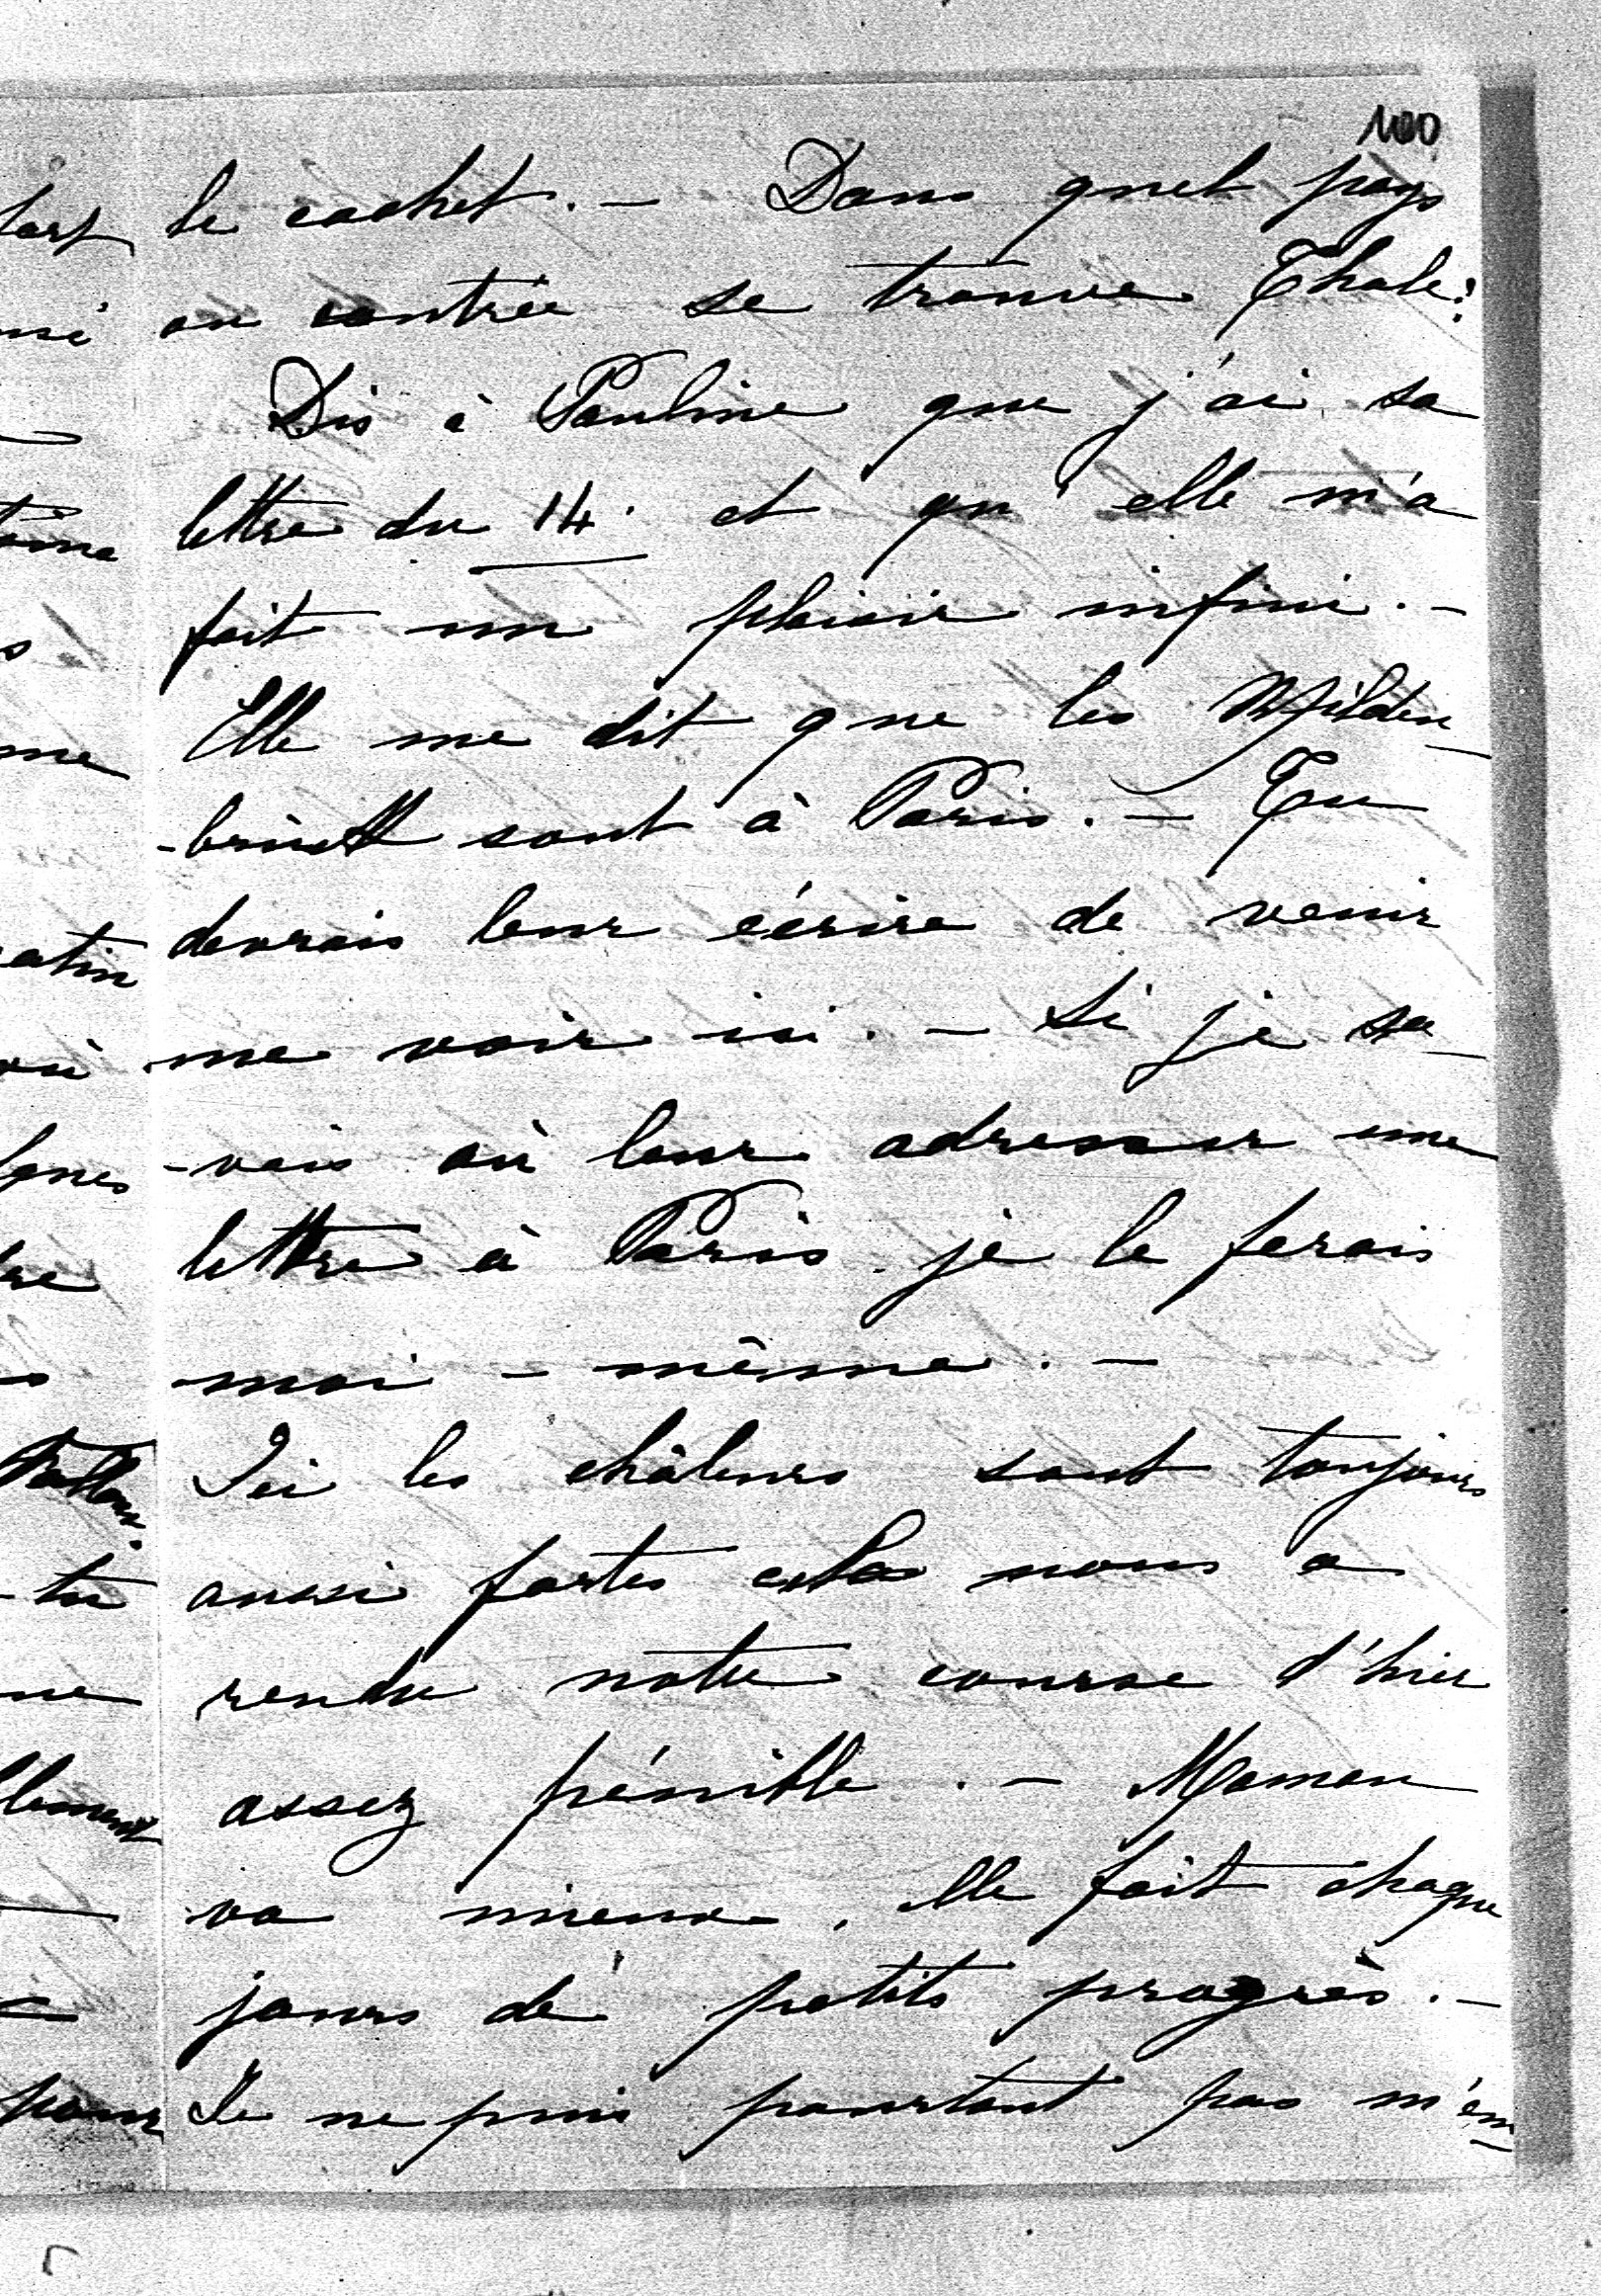 100
le cachet. — Dans quel pays
ou contrée se trouve Thale?
Dis à Pauline que j'ai sa
lettre du 14. et qu'elle m'a
fait un plaisir infini. —
Elle me dit que les Milden-
-bruch sont à Paris. — Tu
devrais leur écrire de venir
me voir ici. — Si je sa-
-vais où leur adresser une
lettre à Paris je le ferais
moi-même. —
Ici les châleurs sont toujours
aussi fortes cela nous a
rendu notre course d'hier
assez pénible. — Maman
va mieux, elle fait chaque
jours de petits progrès. —
Je ne puis pourtant pas m'em-